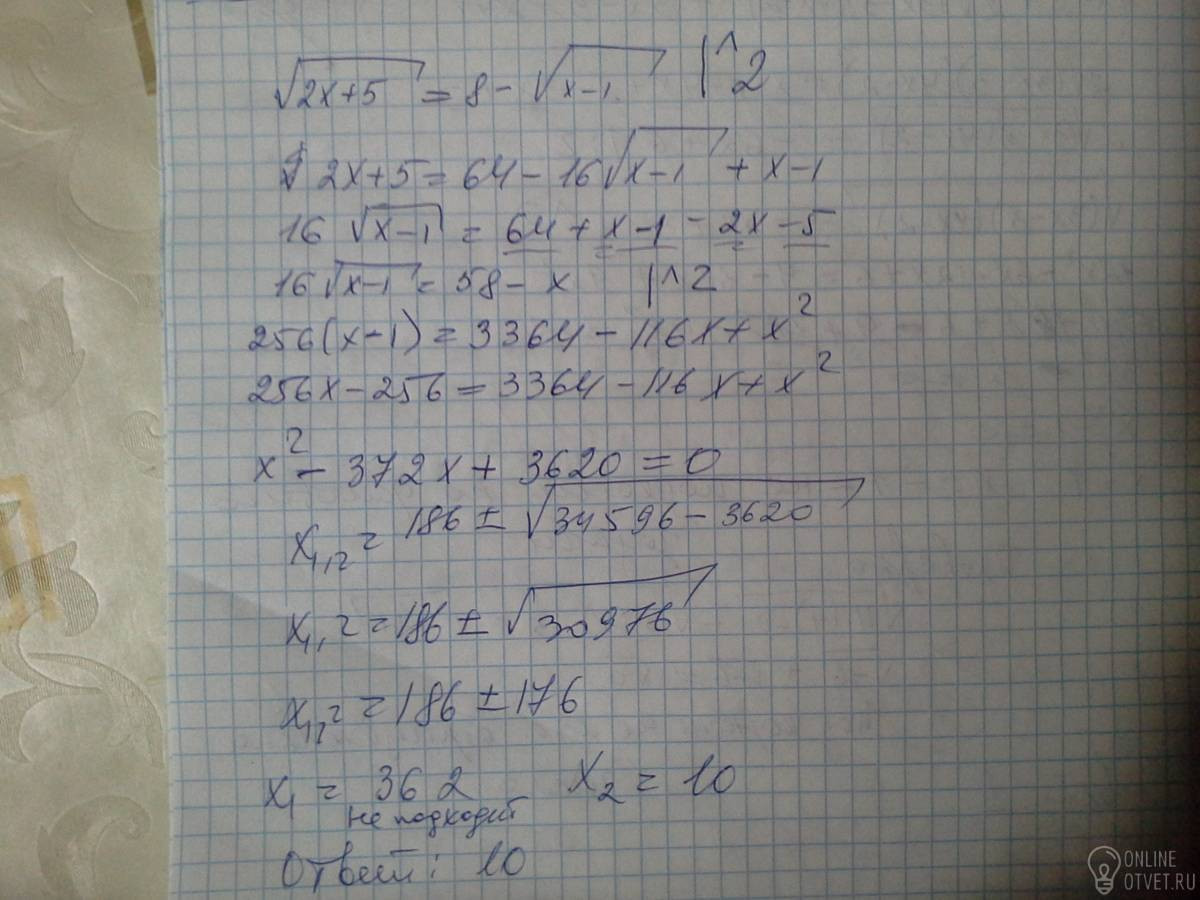 √2x+5 = 8 - √x-1 |^2
2x+5 = 64 - 16√x-1 + x-1
16 √x-1 = 64 + x - 1 - 2x - 5
16√x-1 = 58 - x |^2
256(x-1) = 3364 - 116x + x²
256x - 256 = 3364 - 116x + x²
x² - 372x + 3620 = 0
x₁,₂ = 186 ± √34596 - 3620
x₁,₂ = 186 ± √30976
x₁,₂ = 186 ± 176
x₁ = 362 x₂ = 10
не подходит
Ответ: 10
ONLINE
OTVET.RU